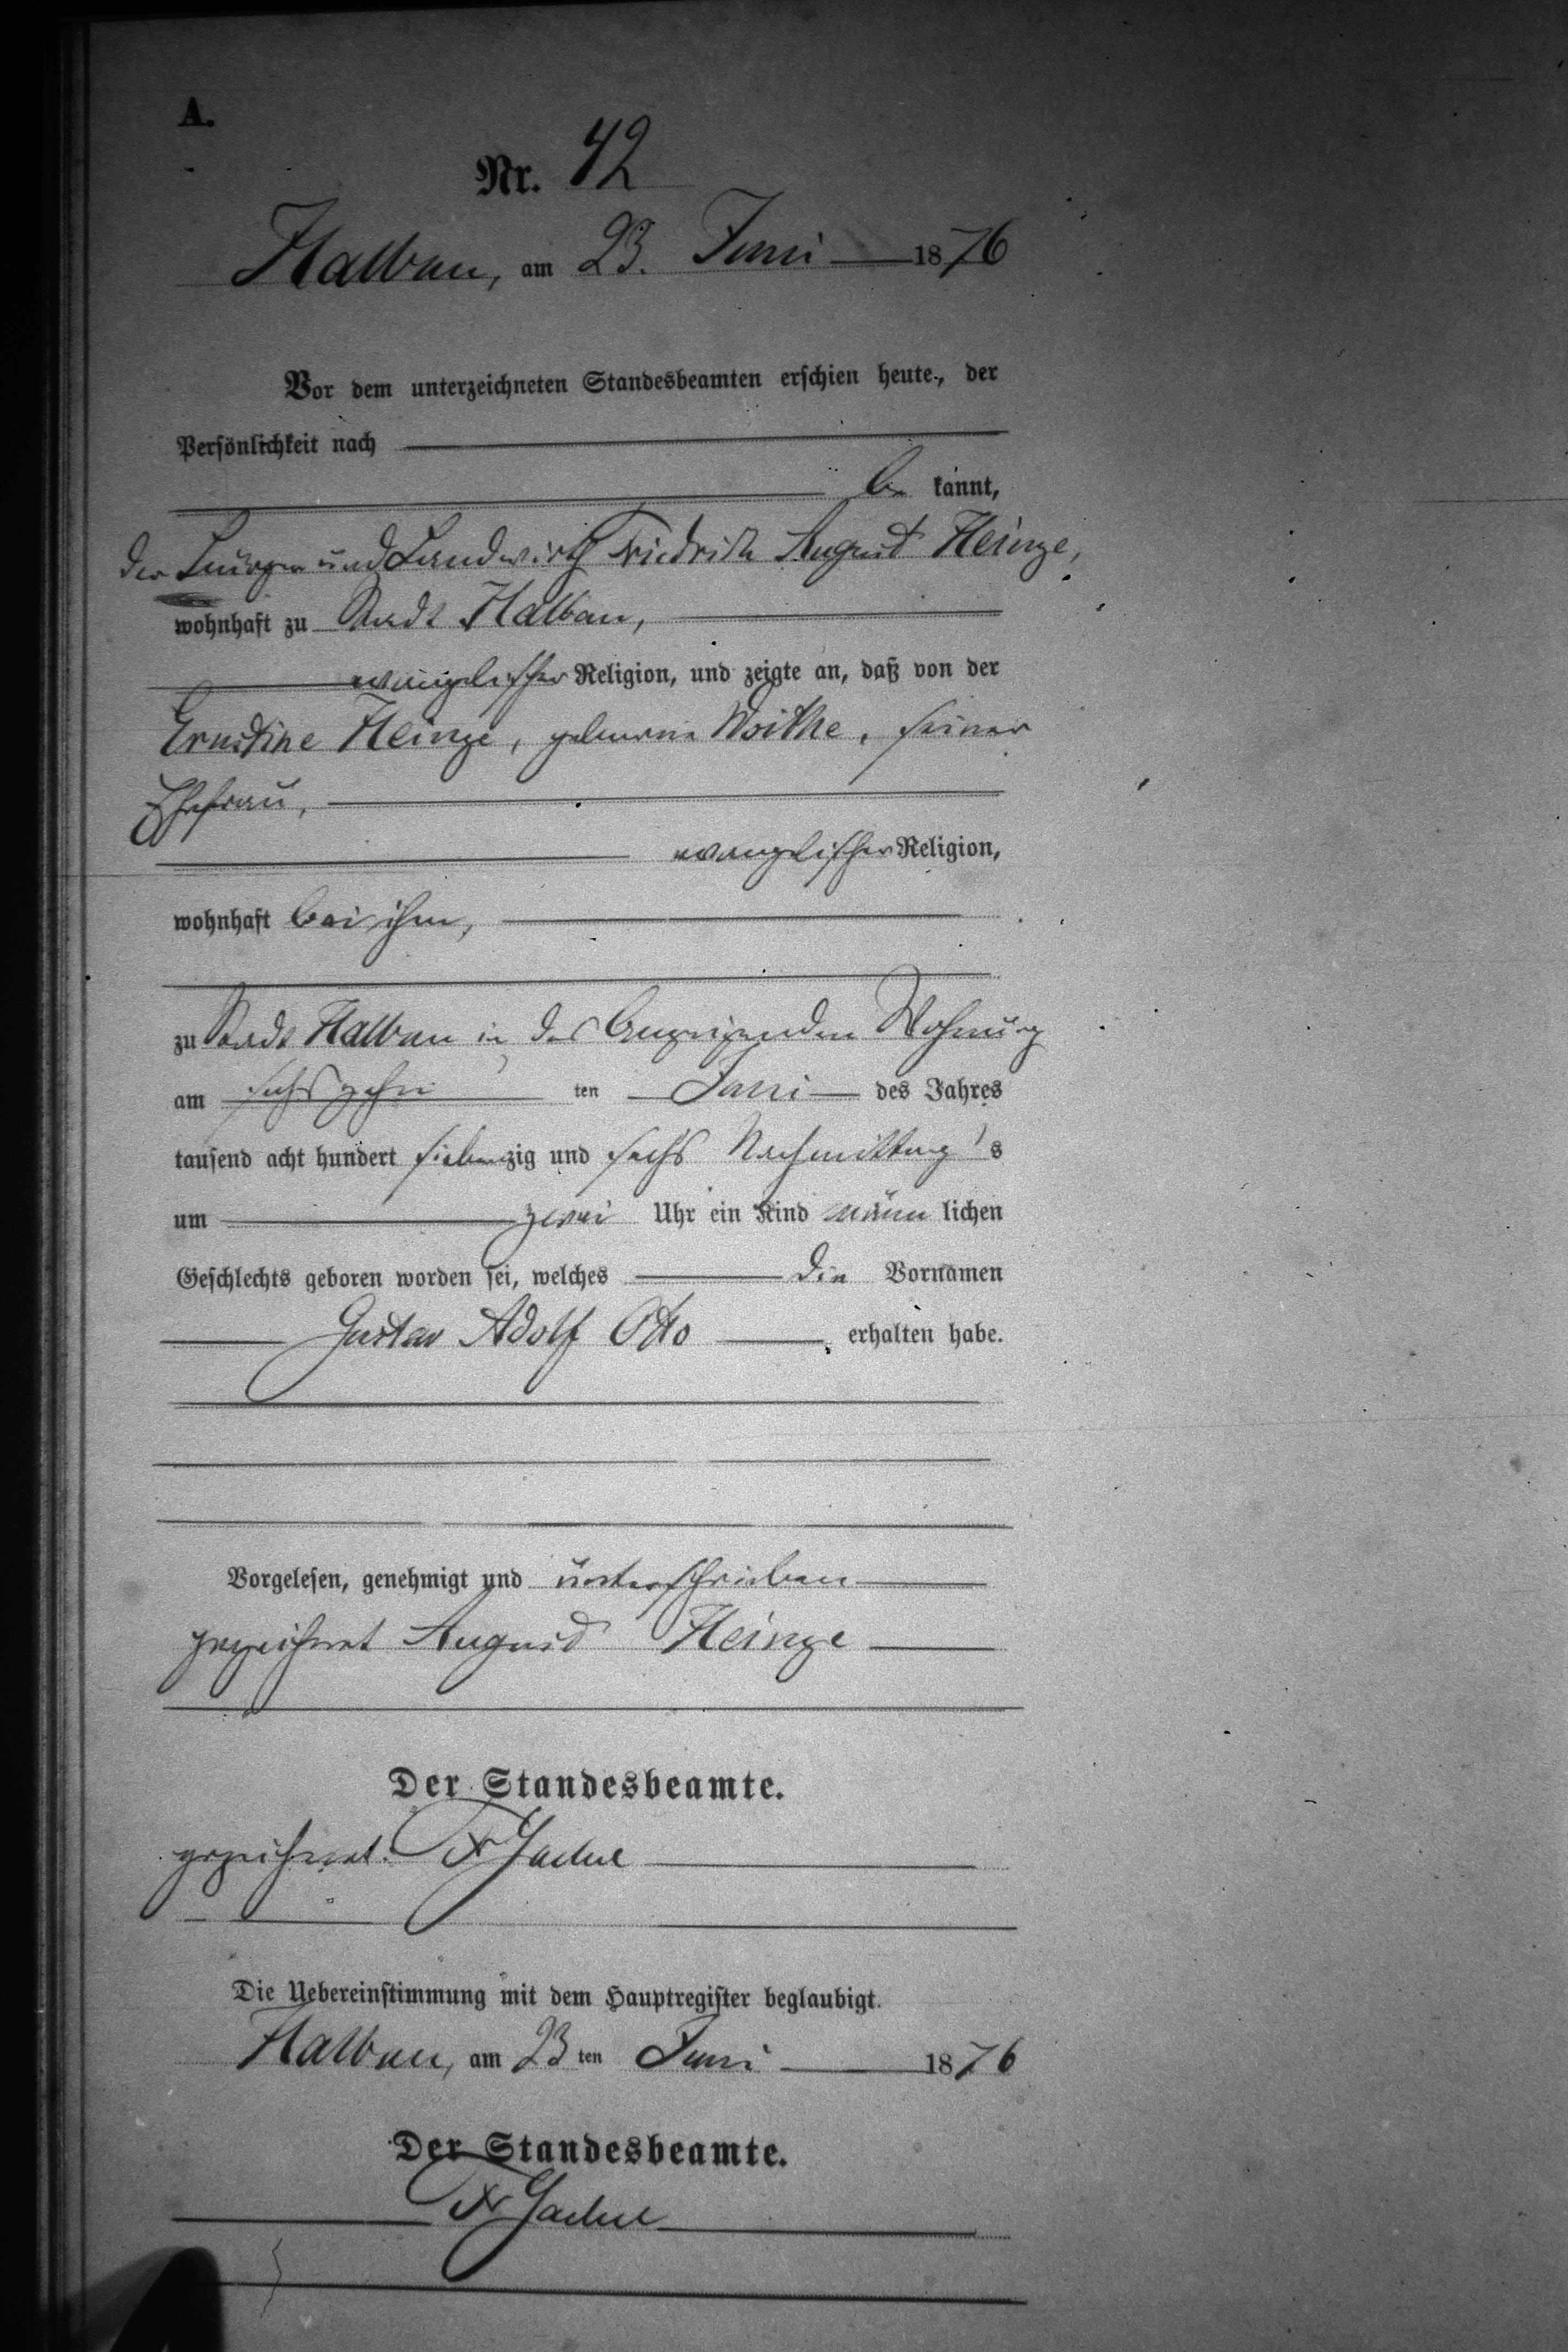 A.
Nr. 42
Halbau, am 23. Juni 1876
Vor dem unterzeichneten Standesbeamten erschien heute, der
Persönlichkeit nach
be kannt,
der Bürger und Landwirth Friedrich August Heinze,
wohnhaft zu Stadt Halbau,
evangelischer Religion, und zeigte an, daß von der
Ernstine Heinze, geborene Woithe, seiner
Ehefrau,
evangelischer Religion,
wohnhaft bei ihm,
zu Stadt Halbau in der Wohnung
am sechszehn ten Juni des Jahres
tausend acht hundert siebenzig und sechs Nachmittags
um zwei Uhr ein Kind männlichen
Geschlechts geboren worden sei, welches die Vornamen
Gustav Adolf Otto erhalten habe.
Vorgelesen, genehmigt und unterschrieben
gezeichnet August Heinze
Der Standesbeamte.
gezeichnet.
Die Uebereinstimmung mit dem Hauptregister beglaubigt.
Halbau, am 23 ten Juni 1876
Der Standesbeamte.